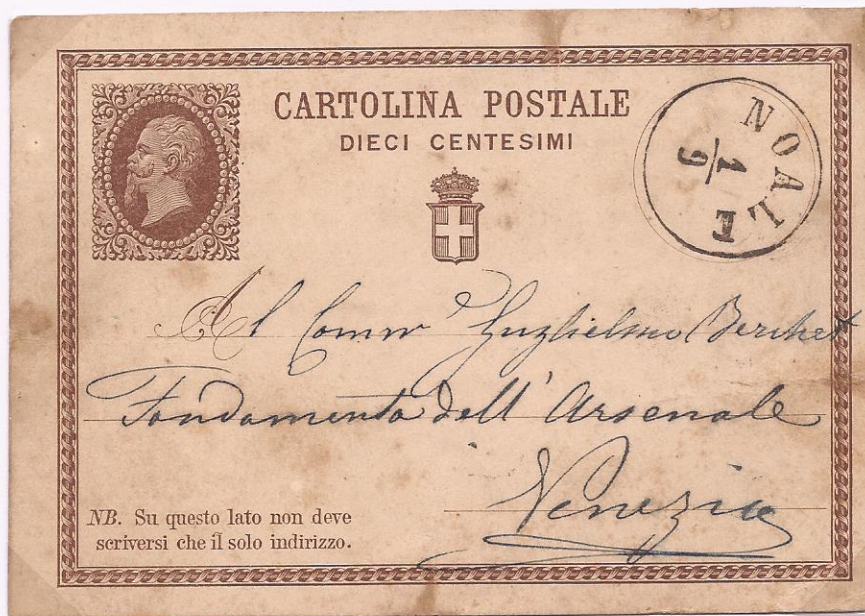 CARTOLINA POSTALE
DIECI CENTESIMI
NOALE
1
9
Al Commr Guglielmo Berchet
Fondamenta dell' Arsenale
Venezia
NB. Su questo lato non deve
scriversi che il solo indirizzo.